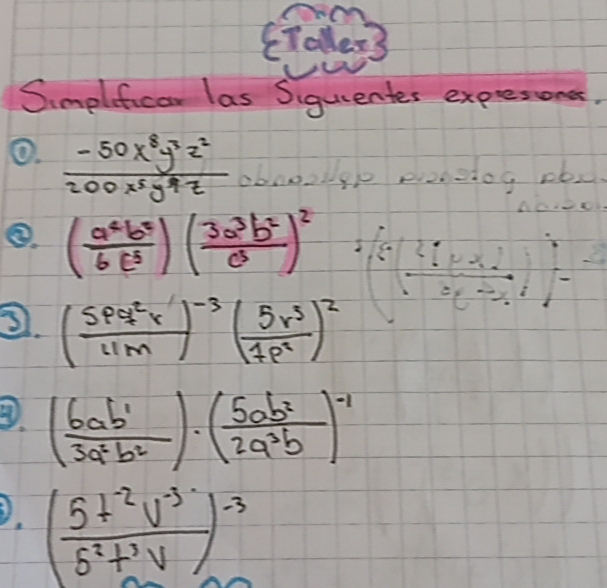 Taller
Simplificar las Siguientes expresiones.
①. -50x⁸y³z² / 200x⁵y⁴z
②. (a⁴b² / 6c⁵) (3a³b² / c³)²
③. (5pq²r / 11m)⁻³ (5r³ / 7p²)²
④ (6ab¹ / 3a²b²) · (5ab² / 2a³b)⁻¹
(5t⁻²v⁻³ / 5²t³v)⁻³